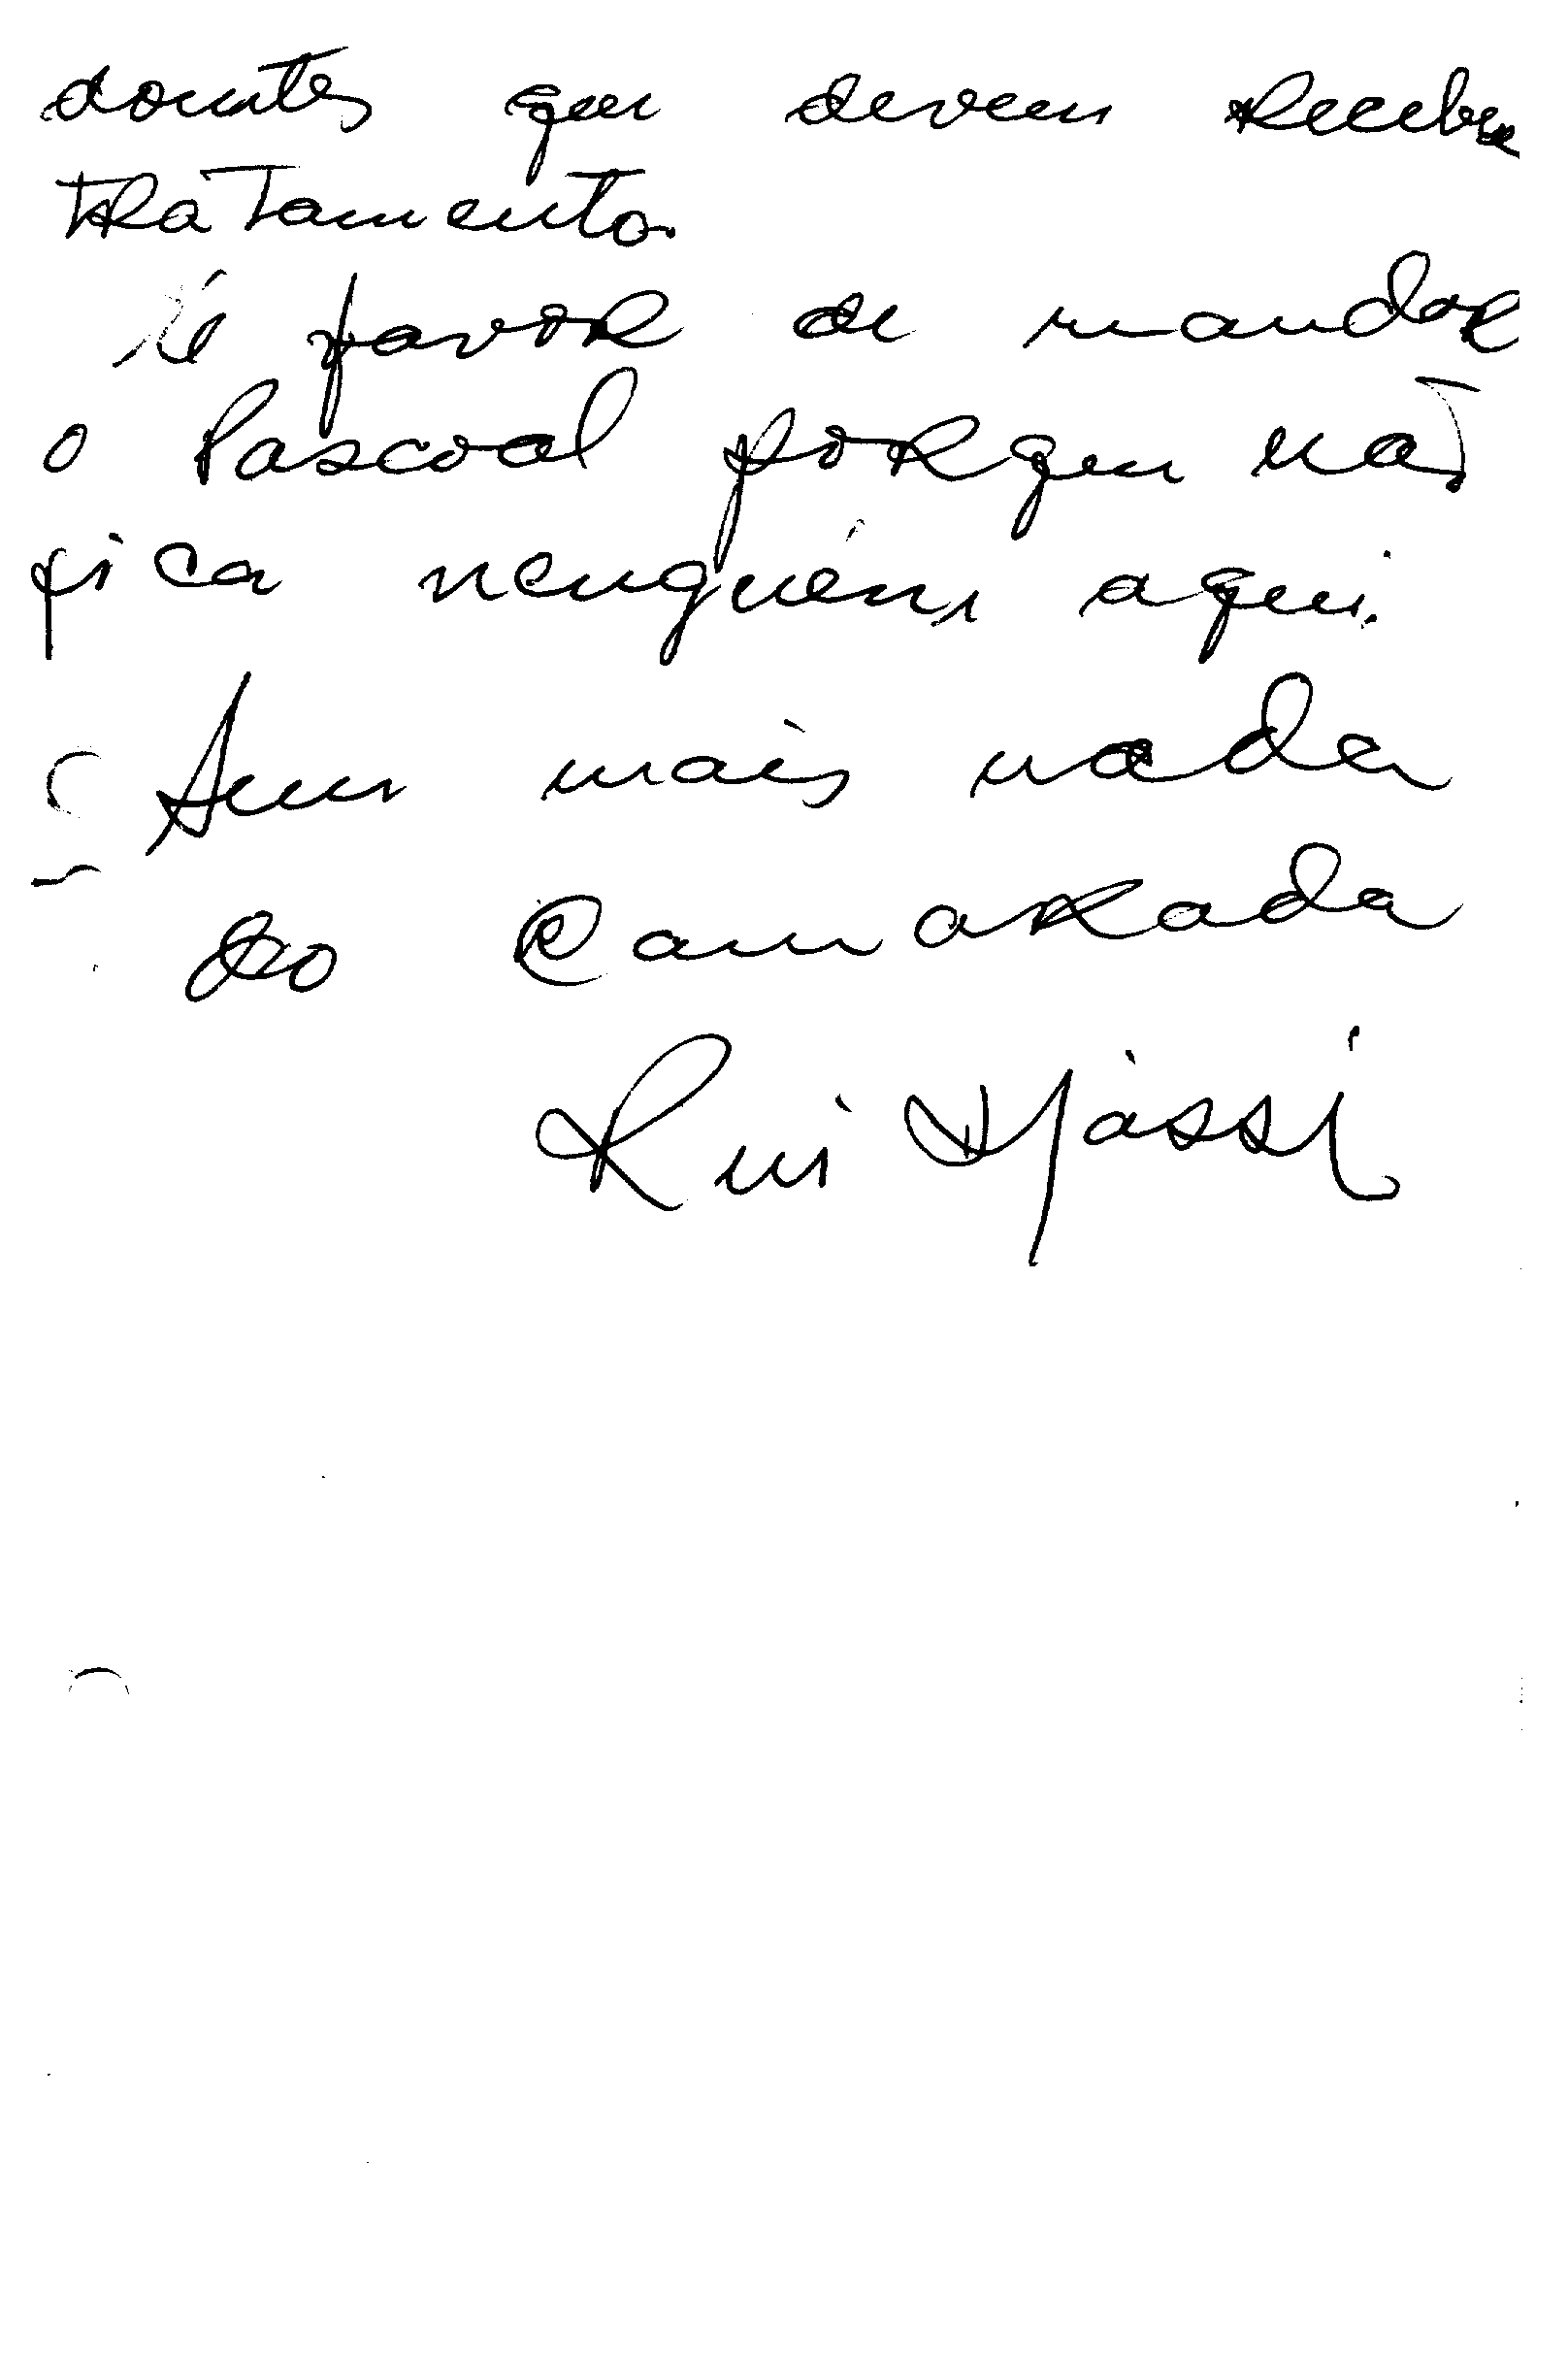 doentes que devem receber
tratamento.
É favor de mandar
o Pascoal porque não
fica nenguém aqui.
Sem mais nada
do Camarada
Rui Djassi